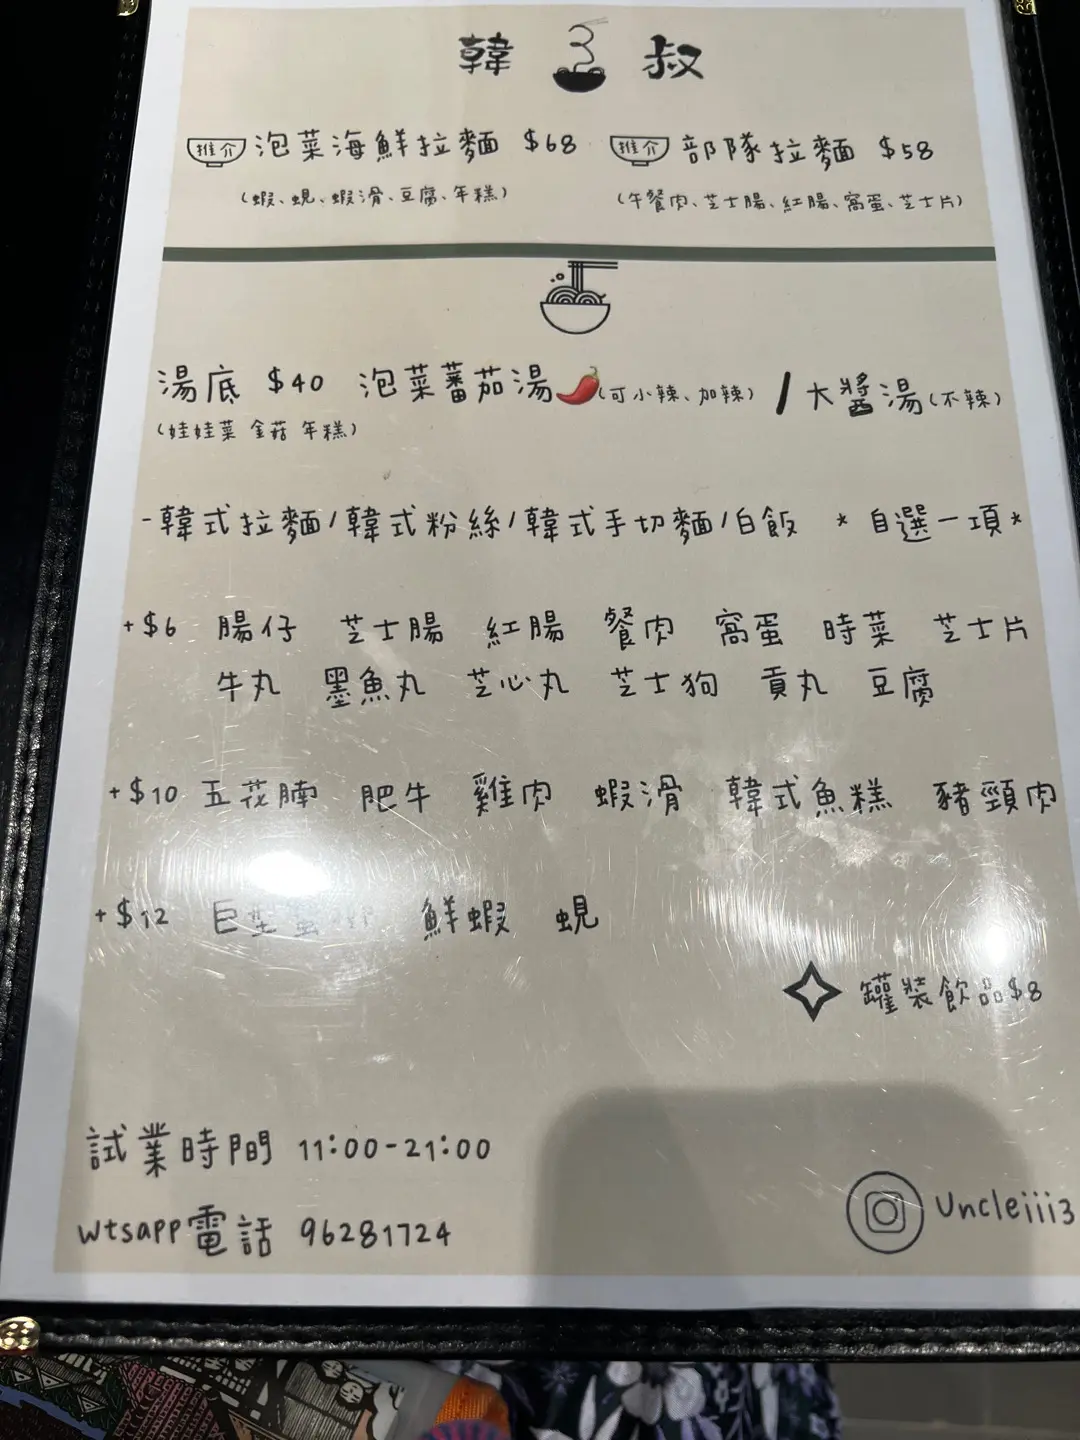 韓 3 叔
推介 泡菜海鮮拉麵 $68 推介 部隊拉麵 $58
(蝦、蜆、蝦滑、豆腐、年糕) (牛餐肉、芝士腸、紅腸、窩蛋、芝士片)
湯底 $40 泡菜蕃茄湯🌶️(可小辣、加辣) / 大醬湯(不辣)
(娃娃菜 金菇 年糕)
-韓式拉麵/韓式粉絲/韓式手切麵/白飯 *自選一項*
+$6 腸仔 芝士腸 紅腸 餐肉 窩蛋 時菜 芝士片
牛丸 墨魚丸 芝心丸 芝士狗 貢丸 豆腐
+$10 五花腩 肥牛 雞肉 蝦滑 韓式魚糕 豬頸肉
+$12 巨型 鮮蝦 蜆
罐裝飲品$8
試業時間 11:00-21:00
Wtsapp電話 96281724
Uncleiii3